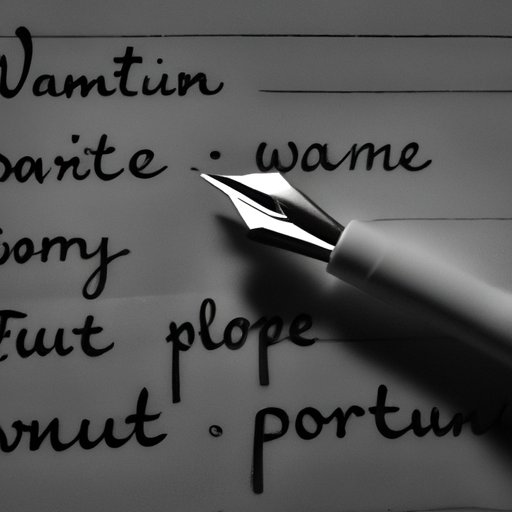 Wamtun
parite . wame
omy
Fuut plope
wnut . portun